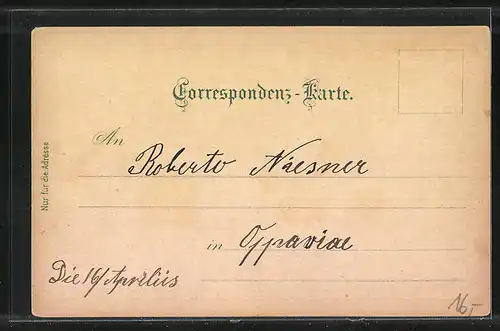 Correspondenz-Karte.
An
Roberto Niesner
in Oppaviae
Die 16/Aprilis
Nur für die Adresse
16,-